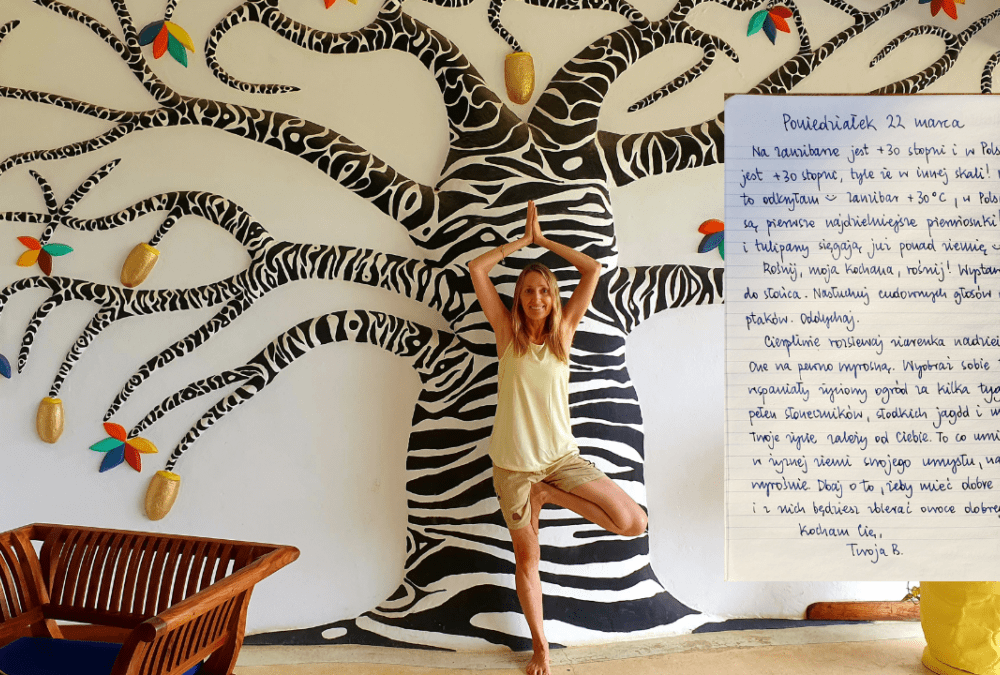 Poniedziałek 22 marca
Na Zanzibarze jest +30 stopni i w Pols
jest +30 stopni, tyle że w innej skali!
to odkryłam Zanzibar +30°C, w Pols
są pierwsze najdzielniejsze pierwiosnki
i tulipany sięgają już ponad ziemię
Rośnij, moja Kochana, rośnij! Wyptaw
do słońca. Nasłuchuj cudownych głosów
ptaków. Oddychaj.
Cierpliwie rozsiewaj ziarenka nadziei
One na pewno wyrosną. Wyobraź sobie
wspaniały żyzny ogród za kilka tyg
pełen słoneczników, słodkich jagód i
Twoje życie zależy od Ciebie. To co umi
w żyznej ziemi swojego umysłu, na
wyrośnie. Dbaj o to, żeby mieć dobre
i z nich będziesz zbierać owoce dobre
Kocham Cię,
Twoja B.